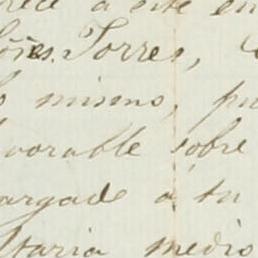 rece a este en
iões. Torres,
mismo, pu
vorable sobre
argade a tu
taria medio